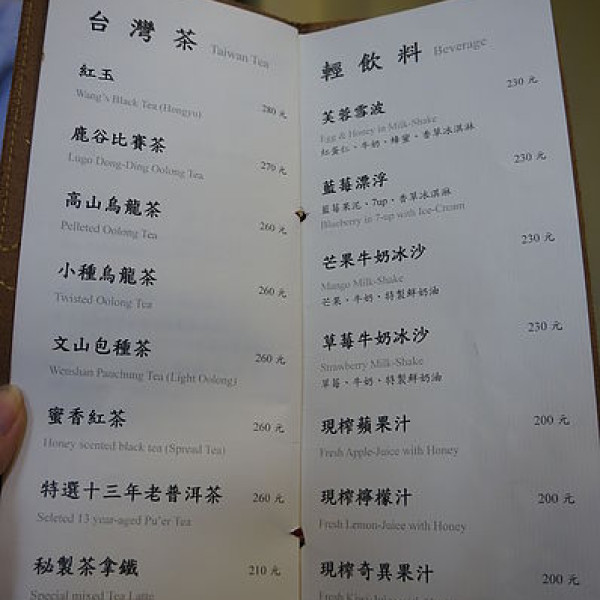 台灣茶 Taiwan Tea
紅玉
Wang's Black Tea (Hongyu) 280 元
鹿谷比賽茶
Lugu Dong-Ding Oolong Tea 270 元
高山烏龍茶
Pelleted Oolong Tea 260 元
小種烏龍茶
Twisted Oolong Tea 260 元
文山包種茶
Wenshan Pauchung Tea (Light Oolong) 260 元
蜜香紅茶
Honey scented black tea (Spread Tea) 260 元
特選十三年老普洱茶 260 元
Seleted 13 year-aged Pu'er Tea
秘製茶拿鐵 210 元
Special mixed Tea Latte
輕飲料 Beverage
芙蓉雪波 230 元
Egg & Honey in Milk-Shake
紅蛋仁、牛奶、蜂蜜、香草冰淇淋
藍莓漂浮 230 元
藍莓果泥、7up、香草冰淇淋
Blueberry in 7-up with Ice-Cream
芒果牛奶冰沙 230 元
Mango Milk-Shake
芒果、牛奶、特製鮮奶油
草莓牛奶冰沙 230 元
Strawberry Milk-Shake
草莓、牛奶、特製鮮奶油
現榨蘋果汁 200 元
Fresh Apple-Juice with Honey
現榨檸檬汁 200 元
Fresh Lemon-Juice with Honey
現榨奇異果汁 200 元
Fresh Kiwi-Juice with Honey